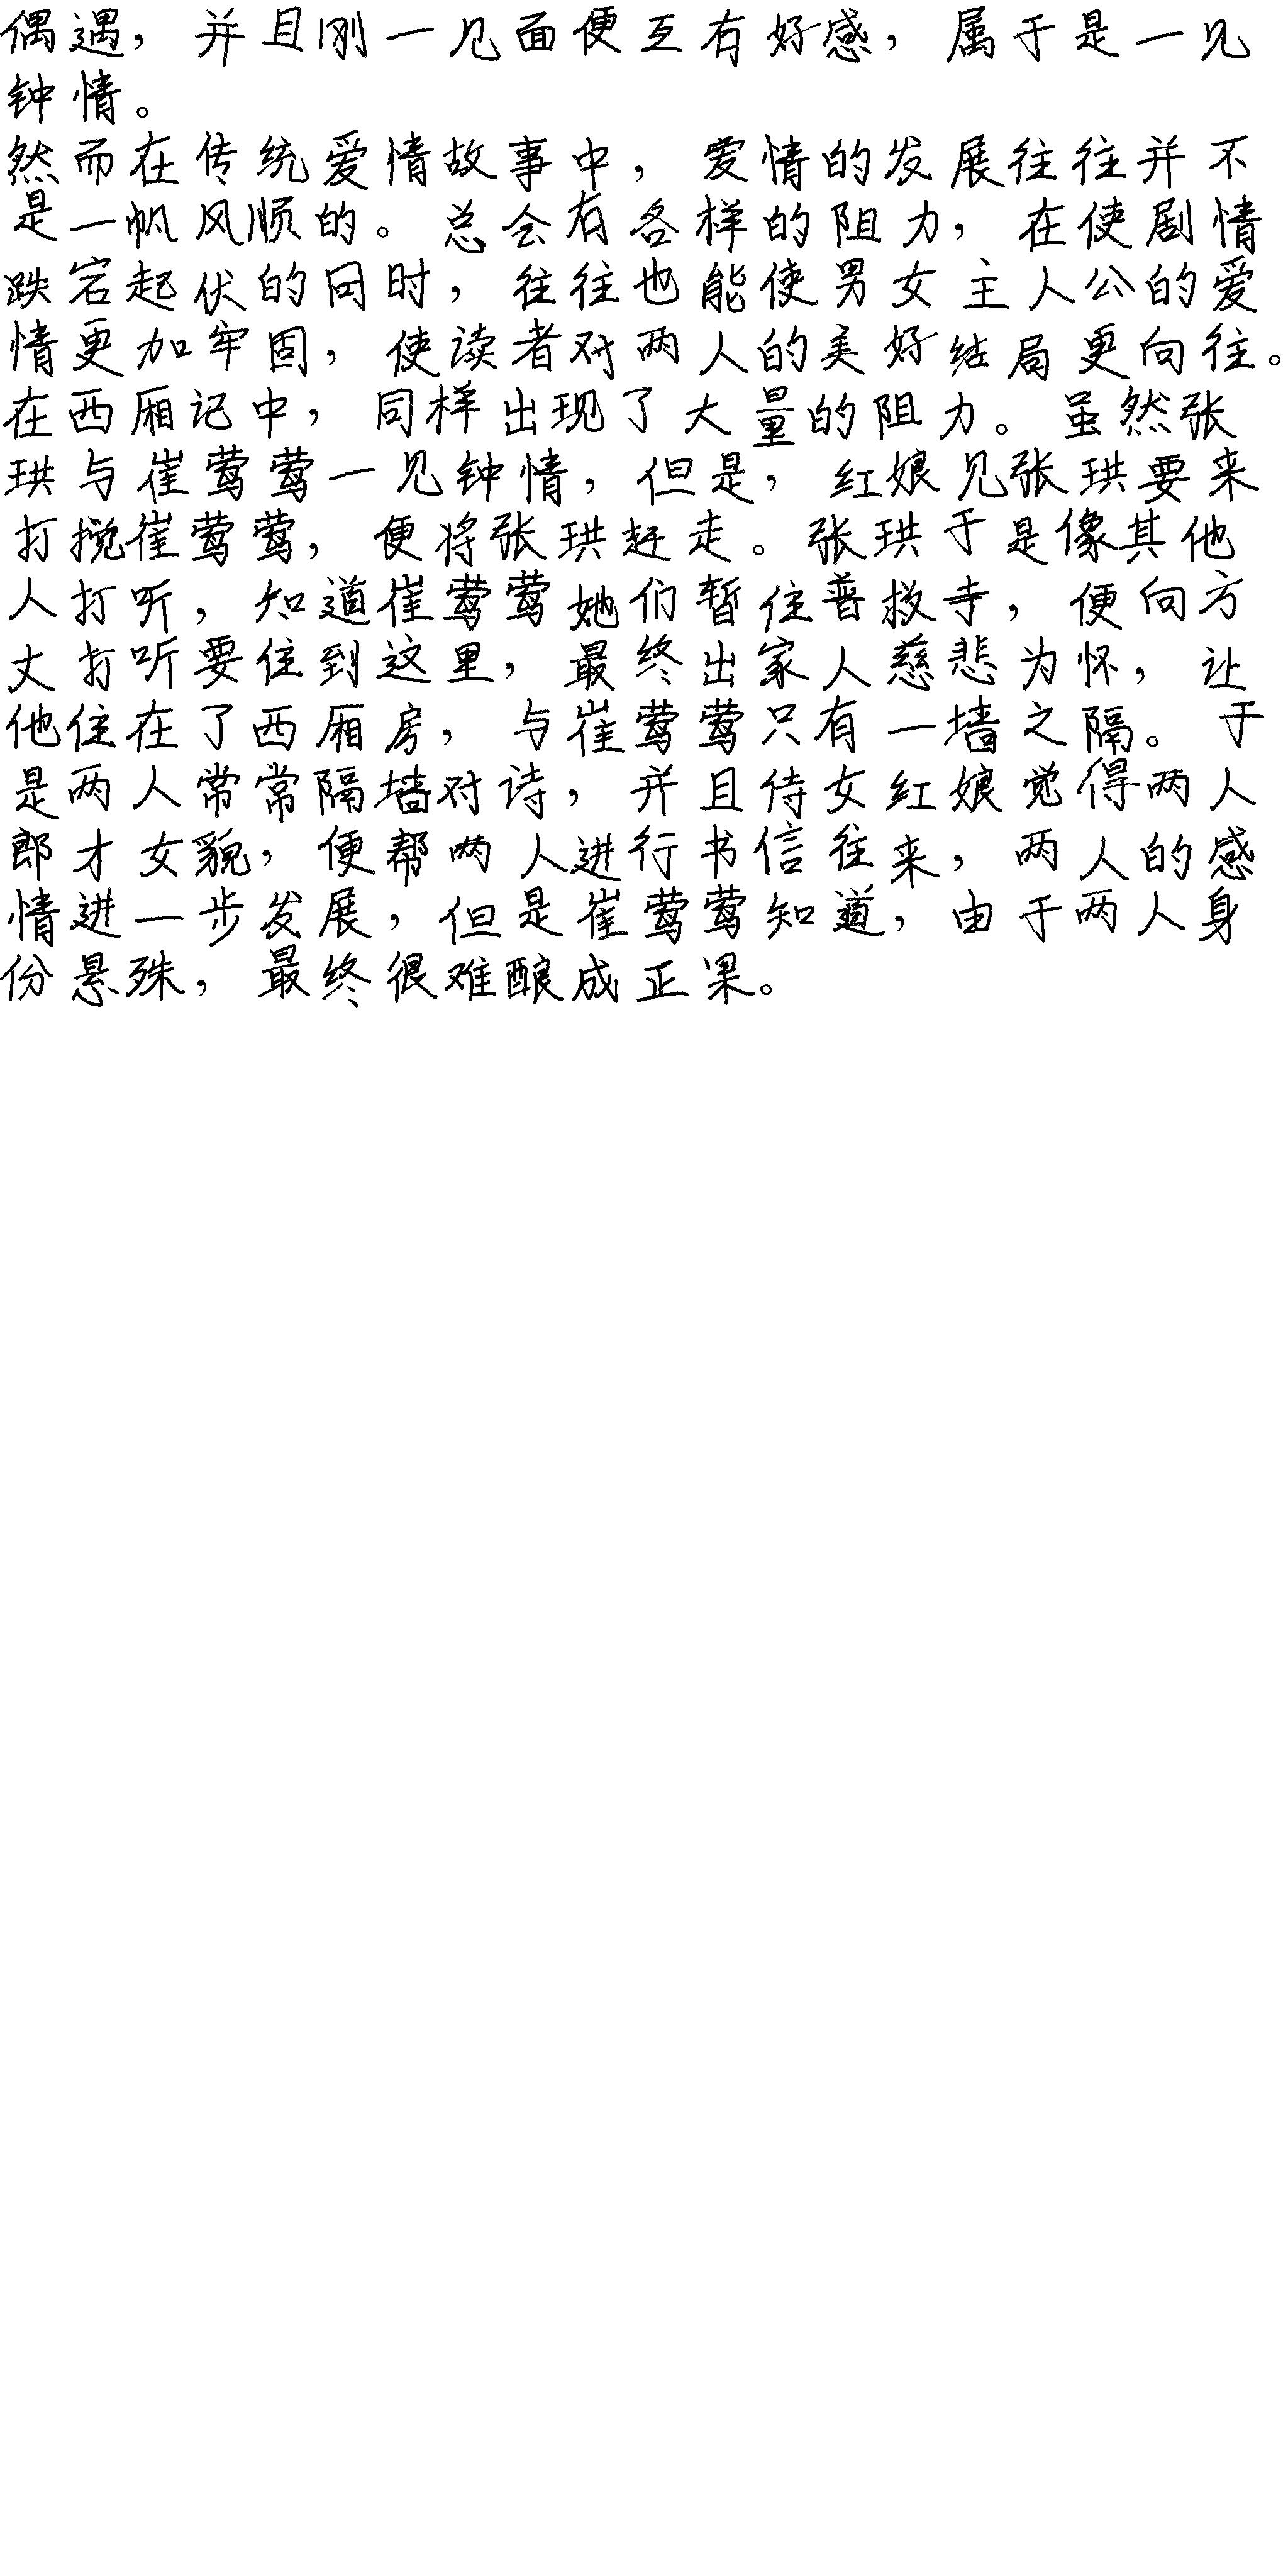 偶遇，并且刚一见面便互有好感，属于是一见
钟情。
然而在传统爱情故事中，爱情的发展往往并不
是一帆风顺的。总会有各样的阻力，在使剧情
跌宕起伏的同时，往往也能使男女主人公的爱
情更加牢固，使读者对两人的美好结局更向往。
在西厢记中，同样出现了大量的阻力。虽然张
珙与崔莺莺一见钟情，但是，红娘见张珙要来
打搅崔莺莺，便将张珙赶走。张珙于是像其他
人打听，知道崔莺莺她们暂住普救寺，便向方
丈打听要住到这里，最终出家人慈悲为怀，让
他住在了西厢房，与崔莺莺只有一墙之隔。于
是两人常常隔墙对诗，并且侍女红娘觉得两人
郎才女貌，便帮两人进行书信往来，两人的感
情进一步发展，但是崔莺莺知道，由于两人身
份悬殊，最终很难酿成正果。